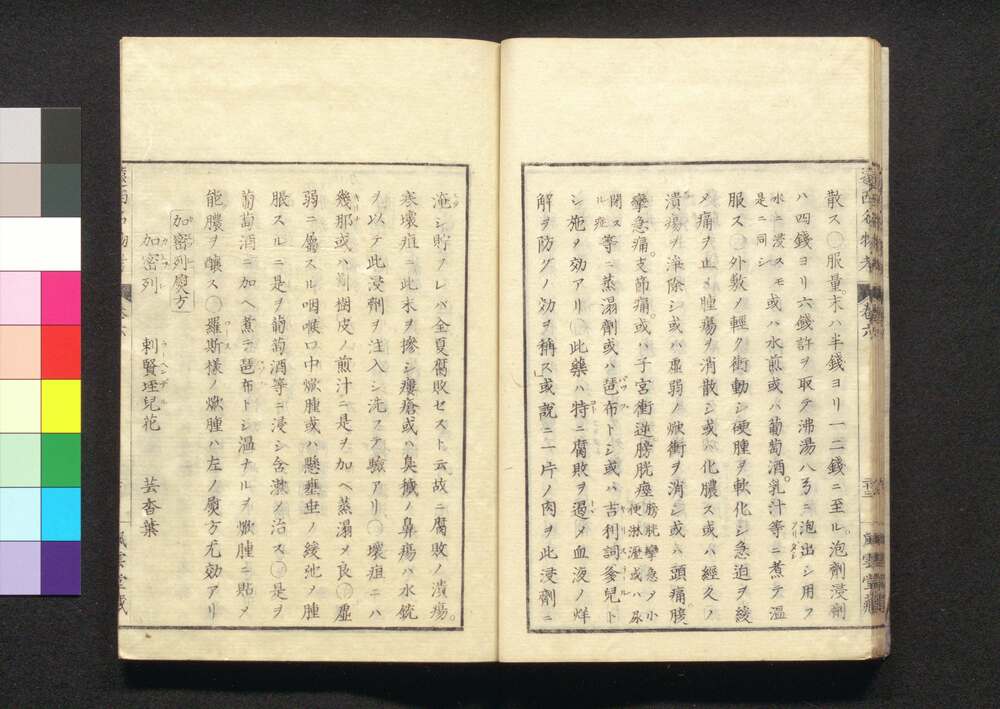 散ス○服量。末ハ半錢ヨリ一二錢ニ至ル。泡劑浸劑
ハ四錢ヨリ六錢許ヲ取テ沸湯八弓ニ泡出シ用フ
水ニ浸スモ
是ニ同シ
或ハ水煎或ハ葡萄酒。乳汁等ニ煮テ温
服ス○外敷メ輕ク衝動シ硬腫ヲ軟化シ急迫ヲ緩
メ痛ヲ止メ腫瘍ヲ消散シ或ハ化膿ス或ハ經久ノ
潰瘍ヲ淨除シ或ハ虚弱ノ焮衝ヲ消シ或ハ頭痛。
攣急痛。支節痛。或ハ子宮衝逆膀胱痙
膀胱攣急メ小
便淋瀝或ハ尿
閉ス
ル症
等ニ蒸溻劑或ハ琶布トシ或ハ吉利詞爹兒ト
シ施メ効アリ○此藥ハ特ニ腐敗ヲ遏メ血液ノ烊
解ヲ防グノ効ヲ稱ス」或說ニ一片ノ肉ヲ此浸劑ニ
淹シ貯フレバ全夏腐敗セスト云故ニ腐敗ノ潰瘍。
寒壞疽ニ此末ヲ摻シ瘻瘡或ハ臭穢ノ鼻瘍ハ水銃
ヲ以テ此浸劑ヲ注入シ洗フテ驗アリ○壞疽ニハ
幾那或ハ樹皮ノ煎汁ニ是ヲ加ヘ蒸溻メ良○虚
弱ニ屬スル咽喉口中焮腫或ハ懸壅垂ノ緩弛メ腫
脹スルニ是ヲ葡萄酒等ニ浸シ含漱メ治ス○是ヲ
葡萄酒ニ加ヘ煮テ琶布トシ温ナルヲ焮腫ニ貼メ
能膿ヲ釀ス○羅斯樣ノ焮腫ハ左ノ奠方尤効アリ
加密列奠方
加密列 剌賢垤兒花 芸香葉